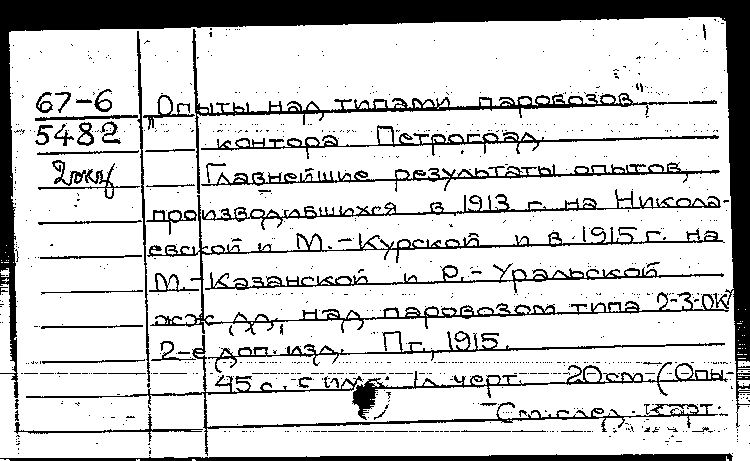 67-6
5482
2 экз
"Опыты над типами паровозов",
контора Петроград.
Главнейшие результаты опытов,
производившихся в 1913 г. на Никола-
евской и М.-Курской и в 1915 г. на
М.-Казанской и Р.-Уральской
жж дд, над паровозом типа 2-3-0К/у
2-е доп. изд. Пг., 1915.
45 с. с илл. 1 л. черт. 20см. (Опы-
См. след. карт.